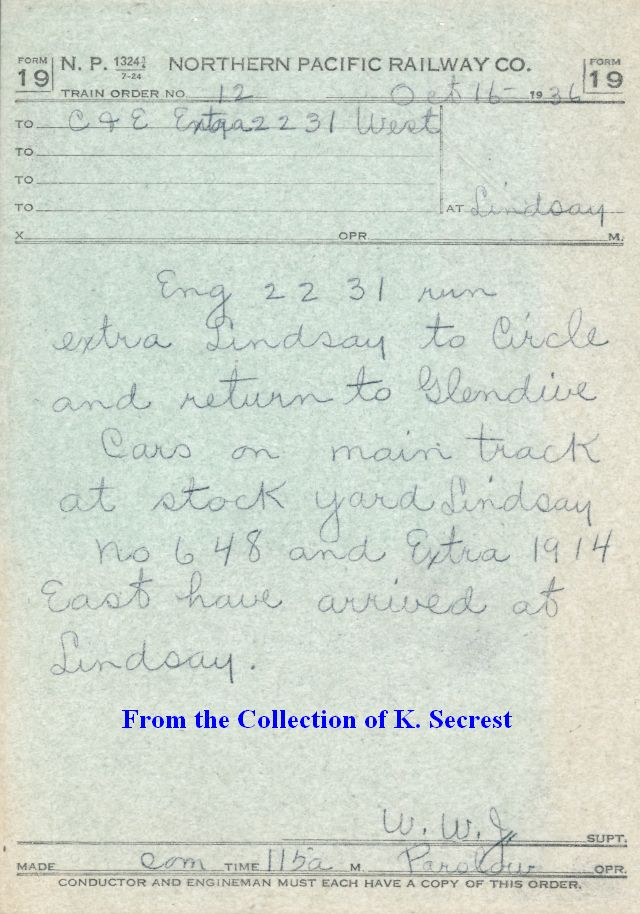 FORM 19 N. P. 1324½ 7-24 NORTHERN PACIFIC RAILWAY CO. FORM 19
TRAIN ORDER NO. 12 Oct 16 1936
TO C & E Extra 2231 West
TO
TO
TO AT Lindsay
X OPR. M.
Eng 2231 run
extra Lindsay to Circle
and return to Glendive
Cars on main track
at stock yard Lindsay
No 648 and Extra 1914
East have arrived at
Lindsay.
From the Collection of K. Secrest
W. W. J. SUPT.
MADE com TIME 115a M. OPR.
CONDUCTOR AND ENGINEMAN MUST EACH HAVE A COPY OF THIS ORDER.